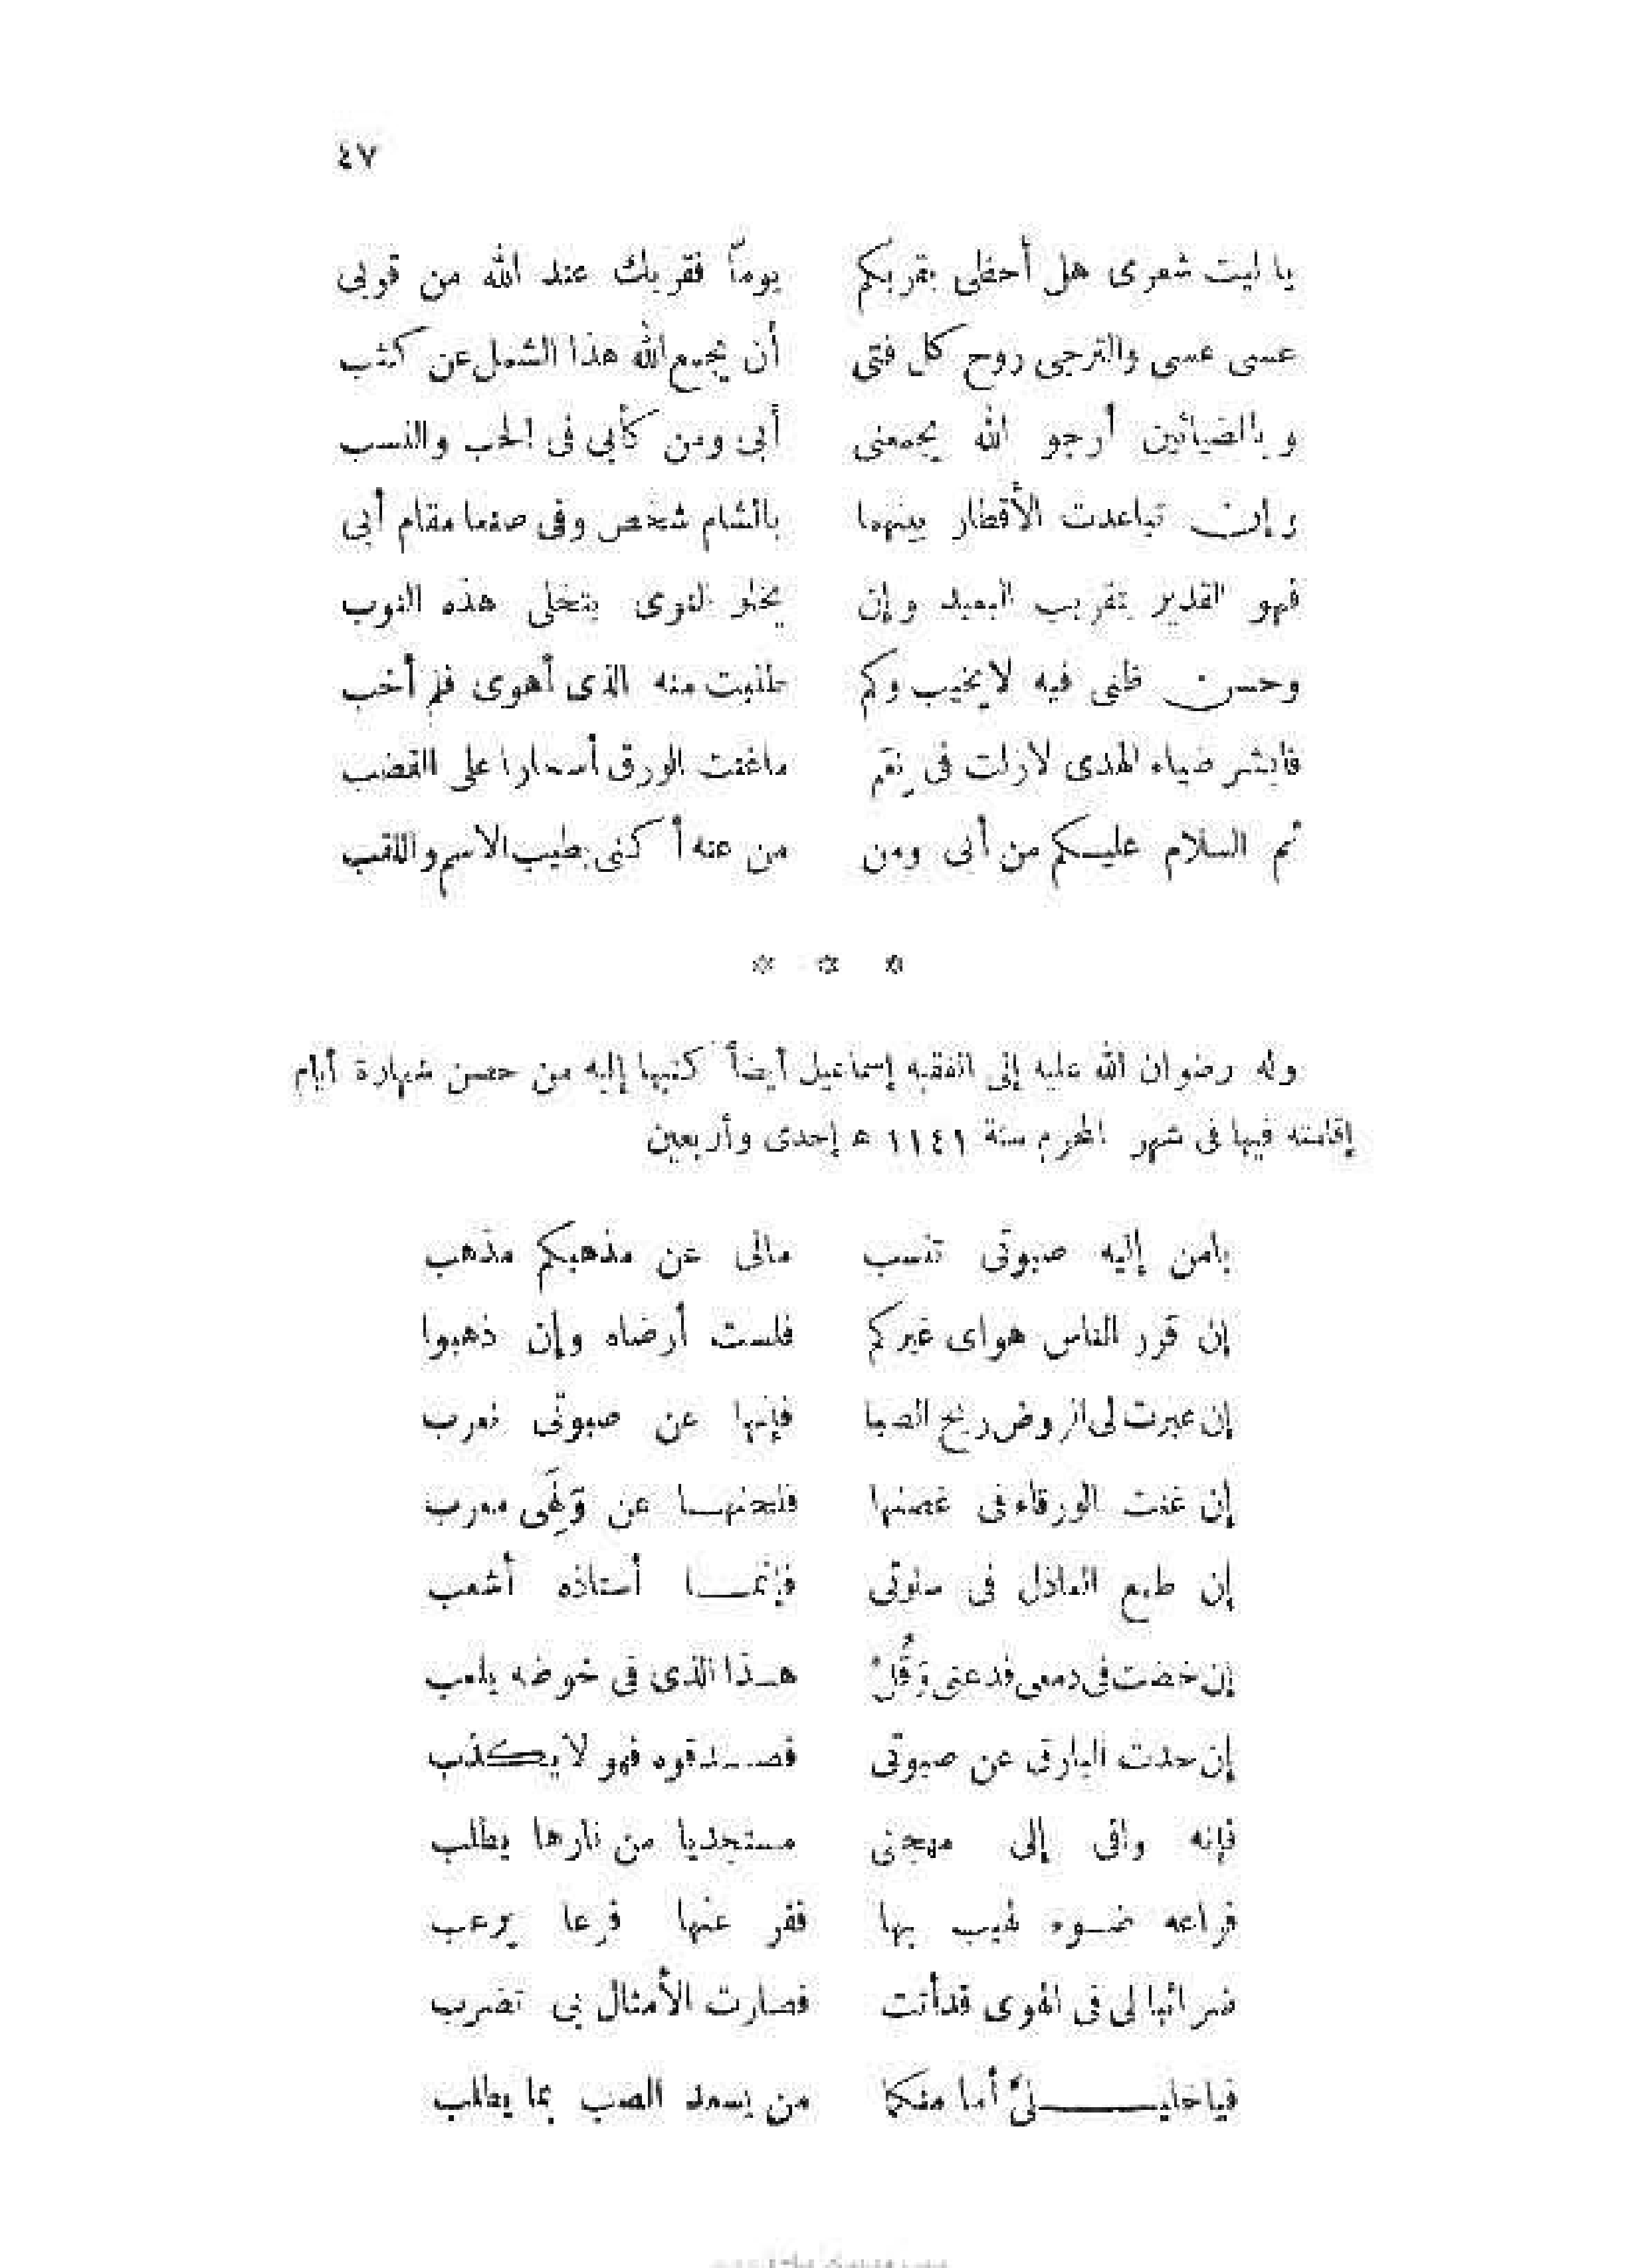 ٤٧
يا ليت شعرى هل أحظى بقربكم يوماً فقربك عند الله من قربى
عسى عسى والترجى روح كل فتى أن يجمع الله هذا الشمل عن كثب
وبالضيائين أرجو الله يجمعنى أبى ومن كأبى فى الحب والنسب
وإن تباعدت الأقطار بينهما بالشام شخص وفى صنعا مقام أبى
فهو القدير بتقريب البعيد وإن يخلو النوى بتخلى هذه النوب
وحسن ظنى فيه لا يخيب وكم طلبت منه الذى أهوى فلم أخب
فابشر ضياء الهدى لازلت فى نِعَم ماغنت الورق أسحارا على القضب
ثم السلام عليكم من أبى ومن من عنه أكنى بطيب الاسم واللقب
* * *
وله رضوان الله عليه إلى الفقيه إسماعيل أيضاً كتبها إليه من حصن شهارة أيام
إقامته فيها فى شهر المحرم سنة ١١٤١ هـ إحدى وأربعين
يامن إليه صبوتى تنسب مالى عن مذهبكم مذهب
إن قرر الناس هواى غيركم فلست أرضاه وإن ذهبوا
إن عبرت لى الروض ريح الصبا فإنها عن صبوتى تعرب
إن غنت الورقاء فى غصنها فلحنهـا عن وَلَهِى معرب
إن طمع العاذل فى سلوتى فإنمـا أستاذه أشعب
إن خضت فى دمعى فدعنى وَقُلْ هـذا الذى فى خوضه يلعب
إن حدث البارق عن صبوتى فصـدقوه فهو لا يكذب
فإنه وافى إلى مهجتى مستجديا من نارها يطلب
فراعه ضـوء لهيب بها ففر عنها فزعا يرعب
غرائبا لى فى الهوى قد أتت فصارت الأمثال بى تضرب
فيا خليـلىّ أما منكما من يسعد الصب بما يطلب